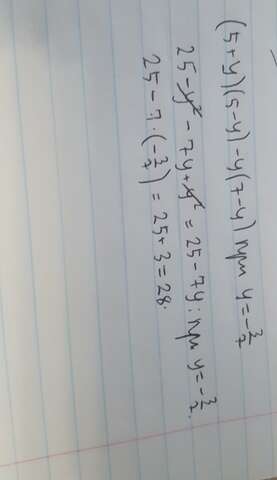 (5+y)(5-y)-y(7-y) при y=-3/7
25-y²-7y+y²=25-7y; при y=-3/7.
25-7·(-3/7)=25+3=28.